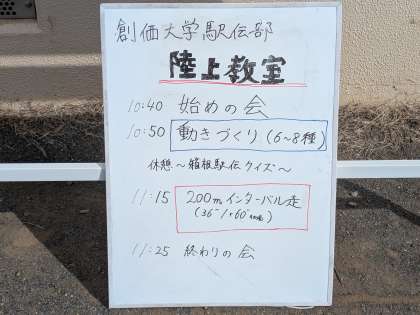 創価大学駅伝部
陸上教室
10:40 始めの会
10:50 動きづくり(6~8種)
休憩~箱根駅伝クイズ~
11:15 200mインターバル走
11:25 終わりの会